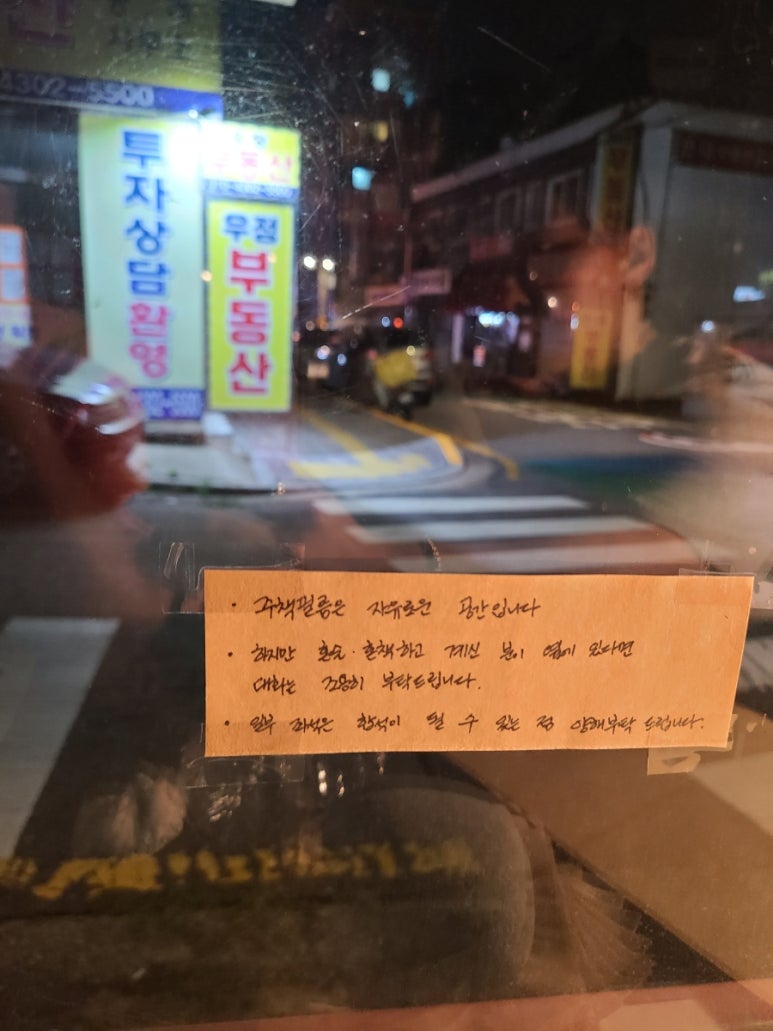 4302-5500
투자상담환영
부동산
우정
부동산
· 주책필름은 자유로운 공간입니다
· 하지만 혼술·혼책하고 계신 분이 옆에 있다면
대화는 조용히 부탁드립니다.
· 일부 좌석은 합석이 될 수 있는 점 양해부탁드립니다.